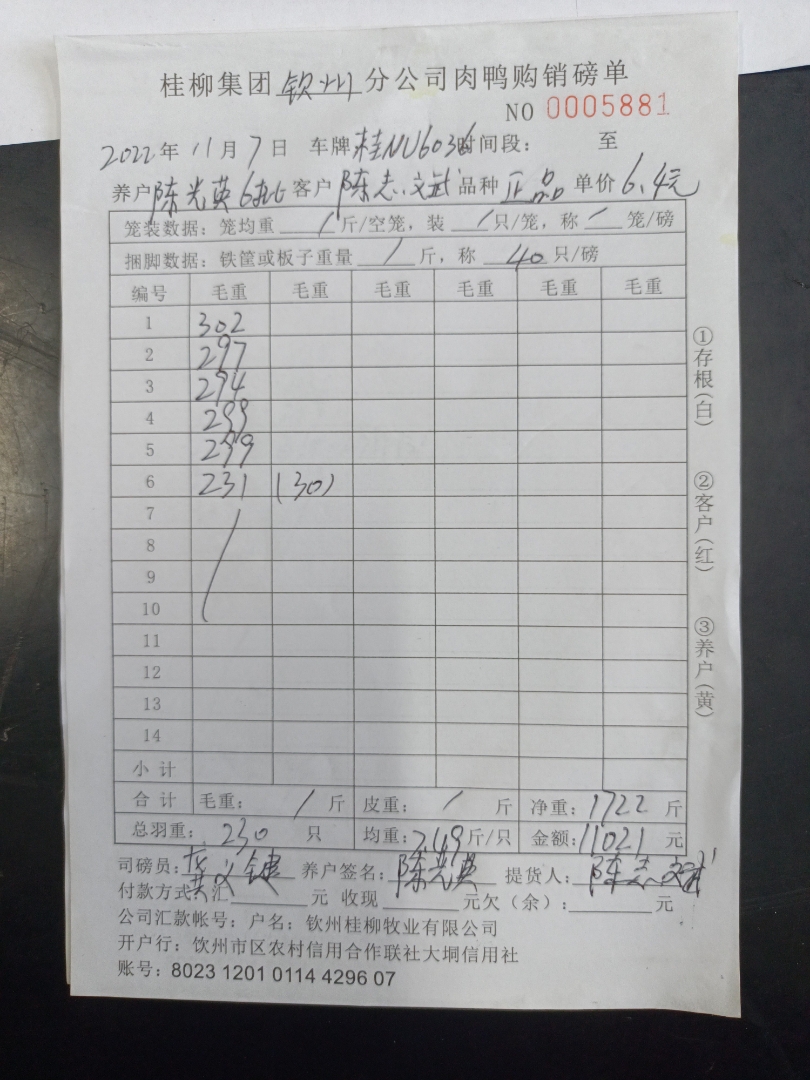 桂柳集团 钦州 分公司肉鸭购销磅单
NO 0005881
2022年 11月 7日 车牌 桂NU6036 时间段： 至
养户 陈光英 6批 客户 陈志、文武 品种 正品 单价 6.4元
笼装数据：笼均重 / 斤/空笼，装 / 只/笼，称 / 笼/磅
捆脚数据：铁筐或板子重量 / 斤，称 40 只/磅
编号 毛重 毛重 毛重 毛重 毛重 毛重
1 302
2 297
3 294
4 299
5 299
6 231 (30)
7
8
9
10
11
12
13
14
小计
合计 毛重： / 斤 皮重： / 斤 净重：1722 斤
总羽重： 230 只 均重：7.49斤/只 金额：11021 元
司磅员：龚义键 养户签名：陈光英 提货人：陈志、文武
付款方式：汇 元 收现 元欠（余）： 元
公司汇款帐号：户名：钦州桂柳牧业有限公司
开户行：饮州市区农村信用合作联社大垌信用社
账号：8023 1201 0114 4296 07
①存根（白）
②客户（红）
③养户（黄）